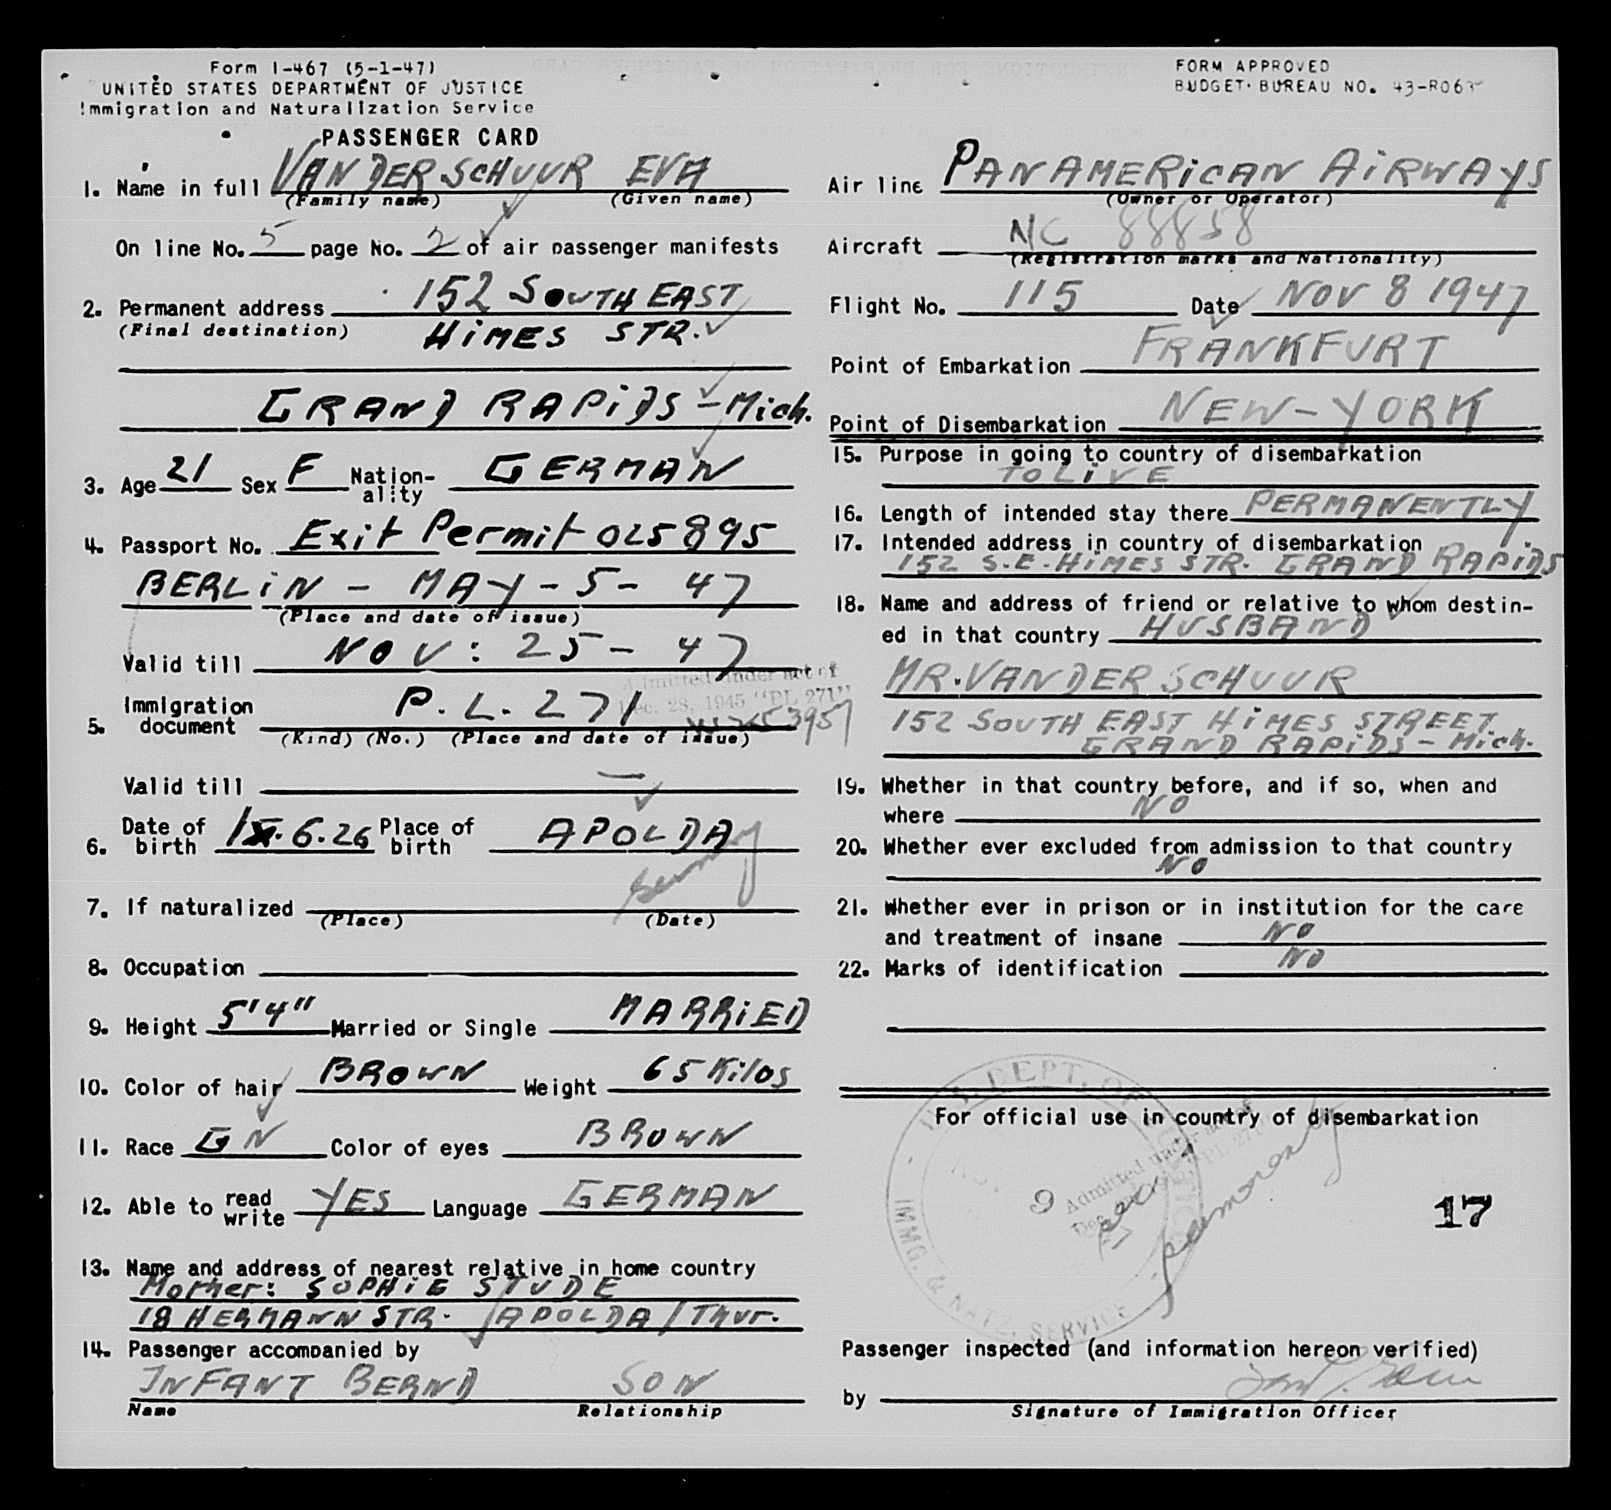 Form I-467 (5-1-47)
UNITED STATES DEPARTMENT OF JUSTICE
Immigration and Naturalization Service
PASSENGER CARD
FORM APPROVED
BUDGET BUREAU NO. 43-R063
1. Name in full VAN DER SCHUUR EVA
(Family name) (Given name)
On line No. 5 page No. 2 of air passenger manifests
2. Permanent address 152 SOUTH EAST
(Final destination) HIMES STR.
GRAND RAPIDS - Mich.
3. Age 21 Sex F Nation-ality GERMAN
4. Passport No. Exit Permit 025895
BERLIN - MAY - 5 - 47
(Place and date of issue)
Valid till NOV: 25 - 47
Admitted under act of
Dec. 28, 1945 "PL 271"
5. Immigration document P.L. 271
(Kind) (No.) (Place and date of issue)
Valid till —
6. Date of birth 15.6.26 Place of birth APOLDA
Germany
7. If naturalized
(Place) (Date)
8. Occupation
9. Height 5'4" Married or Single MARRIED
10. Color of hair BROWN Weight 65 Kilos
11. Race GN Color of eyes BROWN
12. Able to read write YES Language GERMAN
13. Name and address of nearest relative in home country
Mother: SOPHIE STUDE
18 HERMANN STR. APOLDA / Thur.
14. Passenger accompanied by
INFANT BERND SON
Name Relationship
Air line PANAMERICAN AIRWAYS
(Owner or Operator)
Aircraft NC 88858
(Registration marks and Nationality)
Flight No. 115 Date NOV 8 1947
Point of Embarkation FRANKFURT
Point of Disembarkation NEW-YORK
15. Purpose in going to country of disembarkation
TO LIVE
16. Length of intended stay there PERMANENTLY
17. Intended address in country of disembarkation
152 S.E. HIMES STR. GRAND RAPIDS
18. Name and address of friend or relative to whom destin-
ed in that country HUSBAND
MR. VAN DER SCHUUR
152 SOUTH EAST HIMES STREET
GRAND RAPIDS - Mich.
19. Whether in that country before, and if so, when and
where NO
20. Whether ever excluded from admission to that country
NO
21. Whether ever in prison or in institution for the care
and treatment of insane NO
22. Marks of identification NO
For official use in country of disembarkation
U.S. DEPT. OF JUSTICE
IMMG. & NATZ. SERVICE
9
Admitted under act of
17
Passenger inspected (and information hereon verified)
by
Signature of Immigration Officer